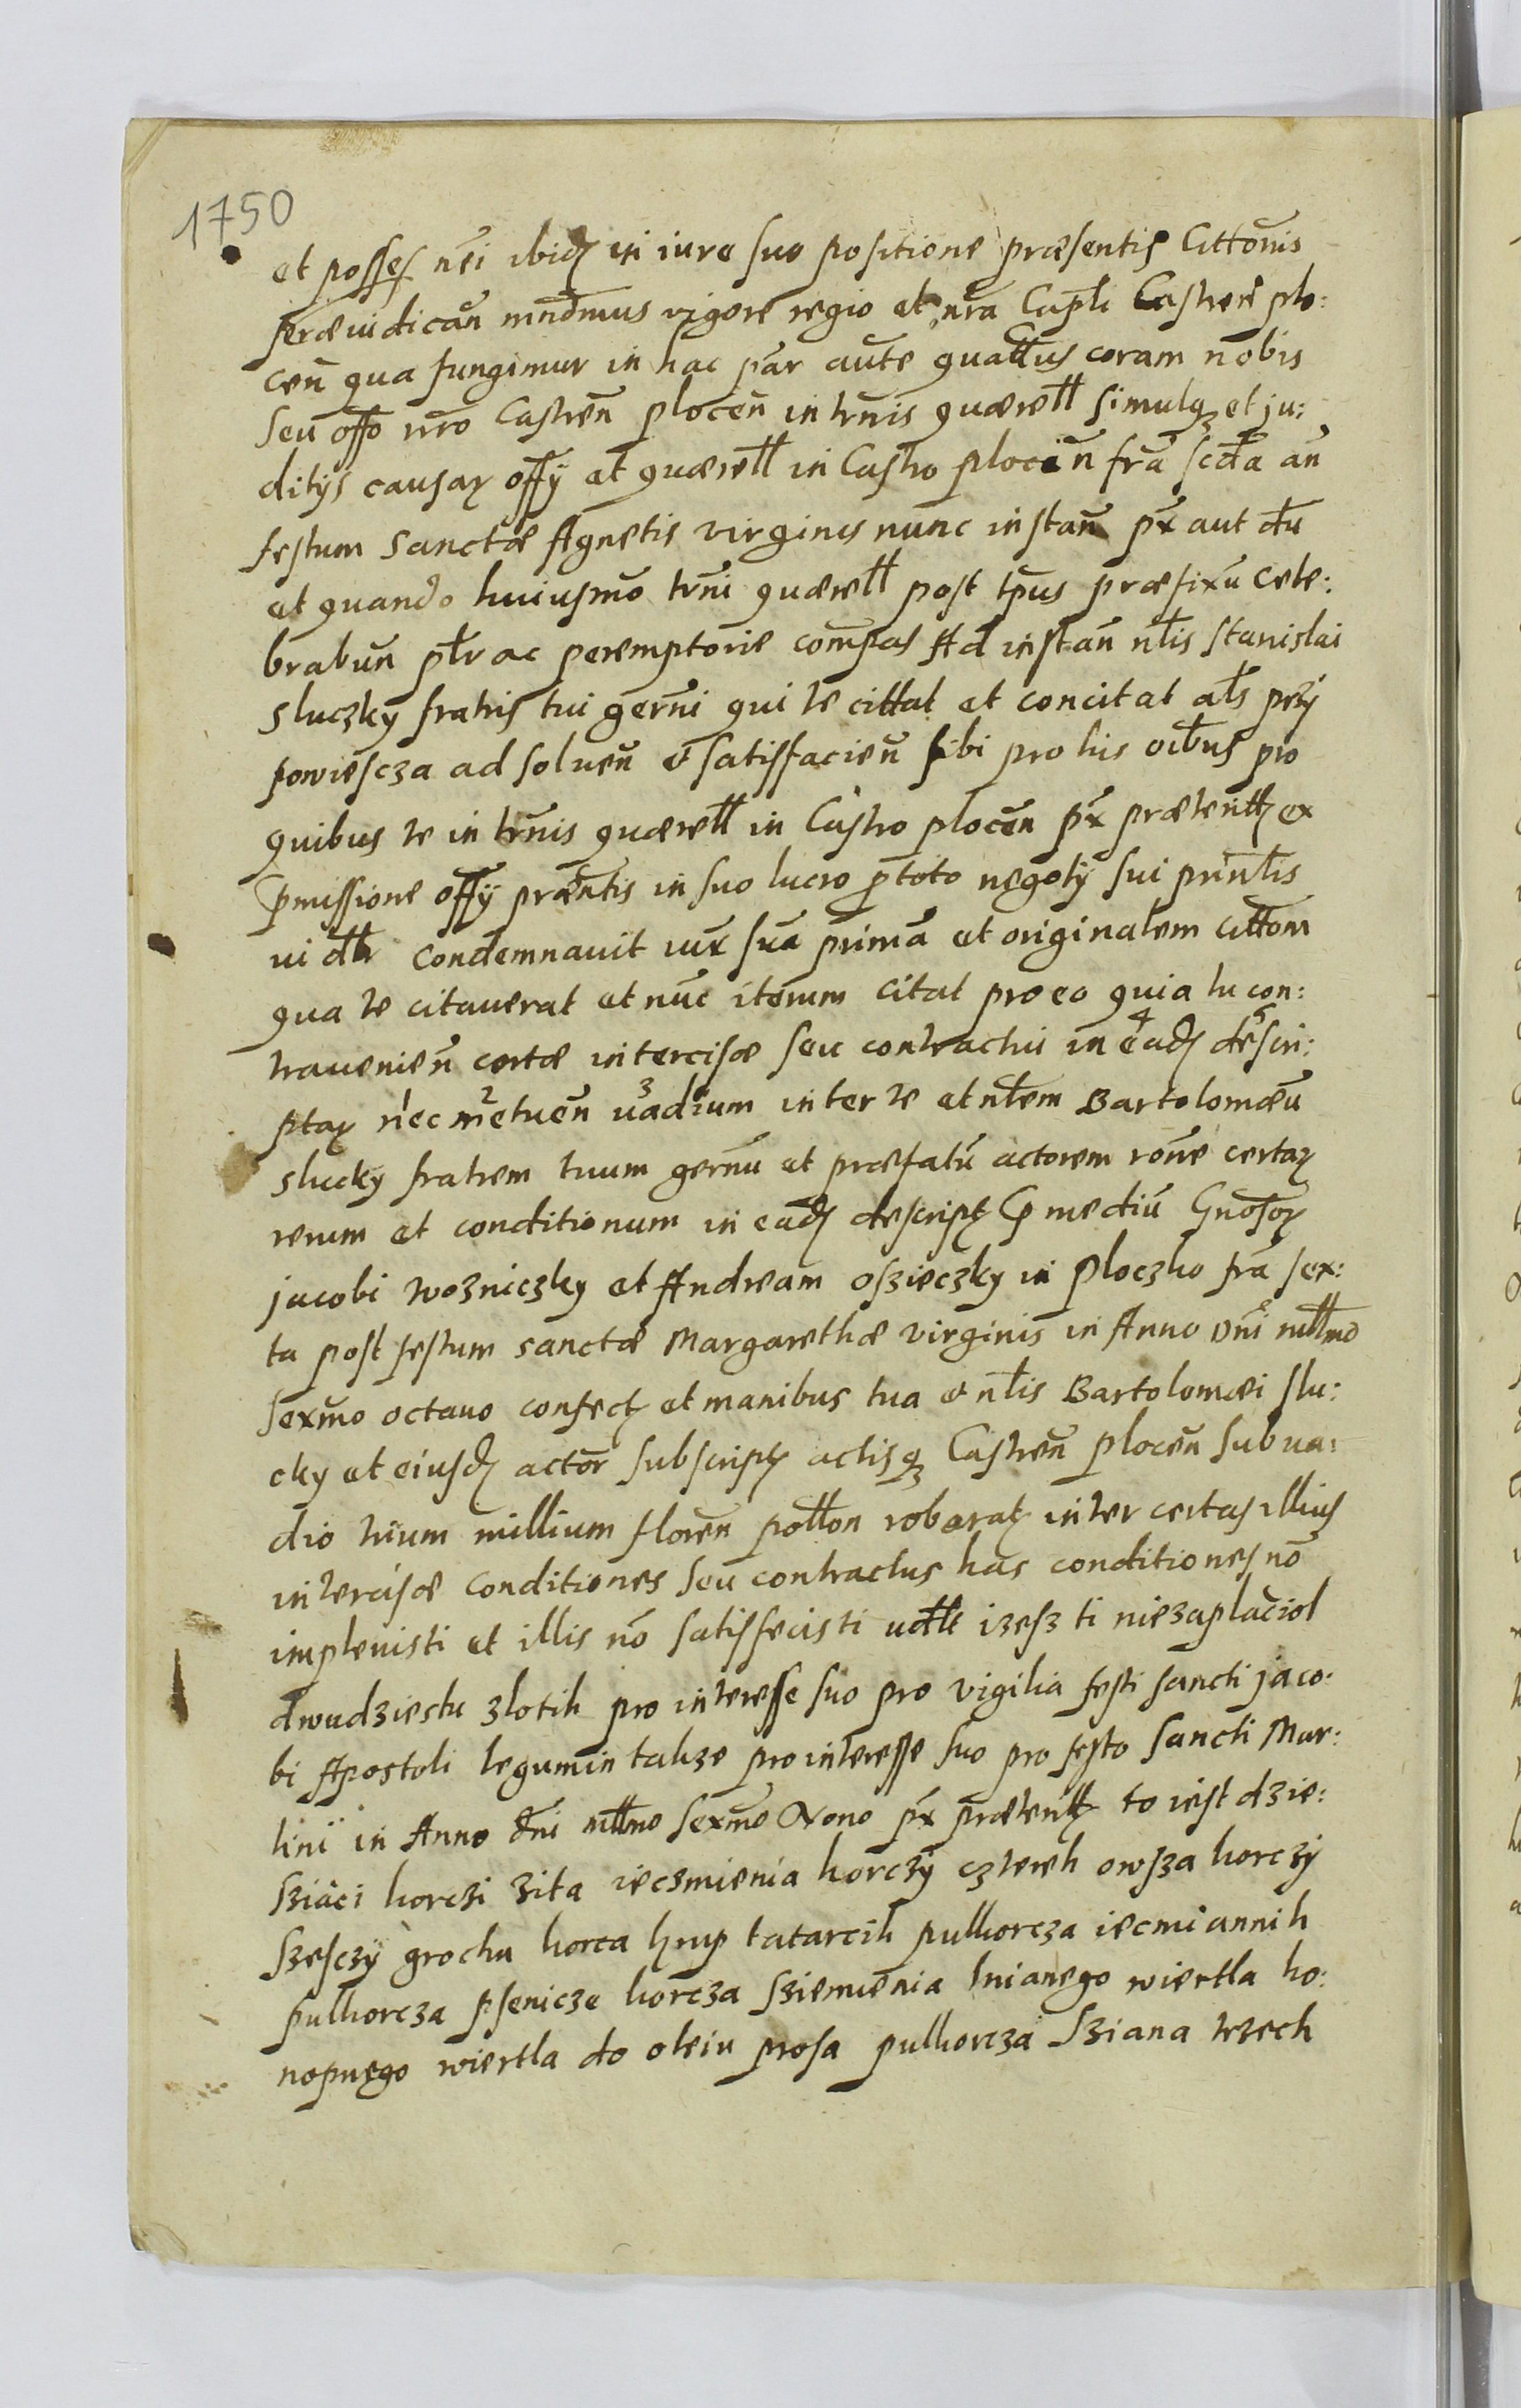 1750
et posses nēi ibidꝫ in iure suo positione præsentis Cittōnis
præiudicān mn̄dmus vigore regio et nr̄a Capt̄i Castreñ plo:
ceñ qua fungimur in hac par aūte quat̄tus coram nobis
seu off̄o nr̄o Castreñ ploceñ in tr̄nis quærel̄l simulqꝫ et ju:
ditÿs causaꝝ offÿ et quærel̄l in Castro ploceñ fr̄a scd̄a an̄
festum Sanctæ Agnetis virginis nunc instan̄ px̄ aut dū
et quando huiusmō tr̄ni quærel̄l post tp̄us præfixū Cele:
brabun̄ pt̄r ac peremptorie compas Ad instan̄ nl̄is Stanislai
Sluczkÿ fratris tui germ̄i qui te cittat et concitat al̄s przÿ
powiescza ad soluen̄ et satisfacien̄ sibi pro his oībus pro
quibus te in tr̄nis quærel̄l in Castro plocen̄ px̄ præterit̄ꝫ ex
p̱missione offÿ præn̄tis in suo lucro p̱ toto negotÿ sui prin̄lis
ui dl̄r condemnauit iux̄ sua primā et originalem Citt̄om
qua te citauerat et nūc iterum citat pro eo quia tu con:
travenien̄ certæ intercisæ seu contractui in eadꝫ descri:
ptaꝝ nec metuen̄ vadium inter te et nl̄em Bartolomæū
slucky fratrem tuum germ̄u et præfatū actorem rōne certaꝝ
rerum et conditionum in eadꝫ descriptꝫ p̱ mediū Gn̄osoꝝ
jacobi Wozniczky et Andream oszieczky in Ploczko fr̄a sex:
ta post festum sanctæ Margarethæ virginis in Anno Dn̄i mil̄lmo
sexm̄o octauo confectꝫ et manibus tua et nl̄is Bartolomæi slu:
cky et eiusdꝫ actor̄ subscriptꝫ actisqꝫ Castren̄ plocen̄ sub va:
dio trium millium floren̄ pol̄lon roboratꝫ inter certas illius
intercisæ conditiones seu contractus has conditiones nō
implevisti et illis nō satisfecisti udl̄t izesz ti niezaplaciol
dwudziestu zlotih pro interesse suo pro vigilia festi sancti jaco:
bi Apostoli legumin takze pro interesse suo pro festo Sancti Mar:
tinï in Anno dn̄i mil̄lmo sexm̄o Nono px̄ præterit̄ꝫ to iest dzie:
sziāci korczi zita iecsmienia korczÿ czterek owsza korczÿ
szesczÿ grochu korca krup tatarcih pulkorcza iecmiannih
pulkorcza psenicze korcza sziemienia lnianego wiertla ko:
nopnego wiertla do oleiu prosa pulkorcza sziana trzech